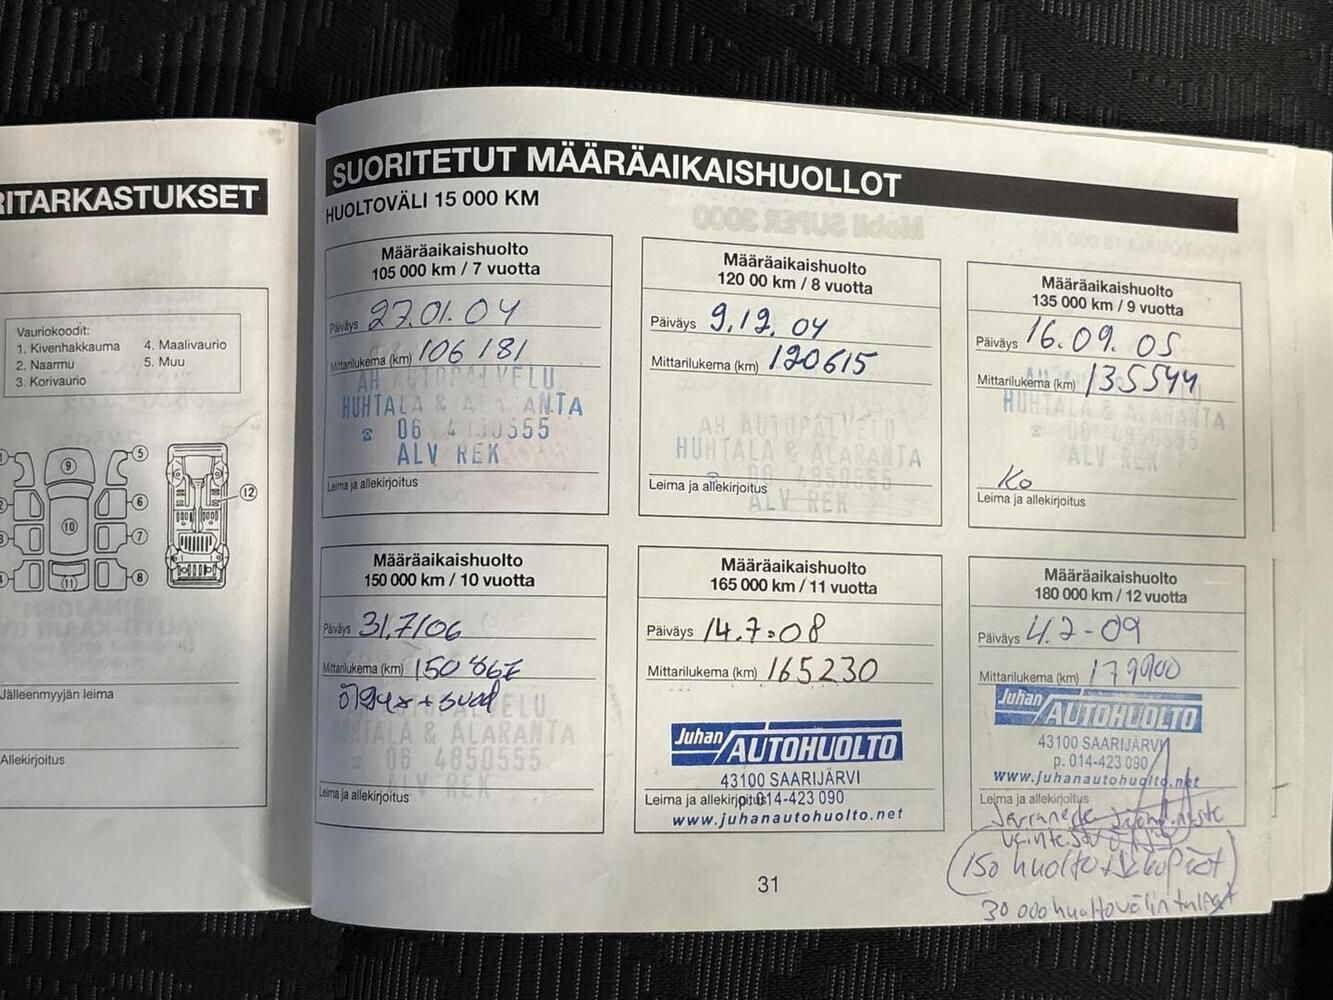 RITARKASTUKSET
Vauriokoodit:
1. Kivenhakkauma
2. Naarmu
3. Korivaurio
4. Maalivaurio
5. Muu
9
5
10
6
12
7
11
8
Jälleenmyyjän leima
Allekirjoitus
SUORITETUT MÄÄRÄAIKAISHUOLLOT
HUOLTOVÄLI 15 000 KM
Määräaikaishuolto
105 000 km / 7 vuotta
Päiväys 27.01.04
Mittarilukema (km) 106 181
AH AUTOPALVELU
HUHTALA & ALARANTA
☎ 06 4850555
ALV REK
Leima ja allekirjoitus
Määräaikaishuolto
120 00 km / 8 vuotta
Päiväys 9.12.04
Mittarilukema (km) 120615
AH AUTOPALVELU
HUHTALA & ALARANTA
06 4850555
ALV REK
Leima ja allekirjoitus
Määräaikaishuolto
135 000 km / 9 vuotta
Päiväys 16.09.05
Mittarilukema (km) 135544
HUHTALA & ALARANTA
☎ 06 4850555
ALV REK
Ko
Leima ja allekirjoitus
Määräaikaishuolto
150 000 km / 10 vuotta
Päiväys 31,7/06
Mittarilukema (km) 150 867
öljyt + suod
AUTOPALVELU
HUHTALA & ALARANTA
☎ 06 4850555
ALV REK
Leima ja allekirjoitus
Määräaikaishuolto
165 000 km / 11 vuotta
Päiväys 14.7.08
Mittarilukema (km) 165230
Juhan AUTOHUOLTO
43100 SAARIJÄRVI
Leima ja allekirjoitus
p. 014-423 090
www.juhanautohuolto.net
Määräaikaishuolto
180 000 km / 12 vuotta
Päiväys 4.2-09
Mittarilukema (km) 179900
Juhan AUTOHUOLTO
43100 SAARIJÄRVI
p. 014-423 090
www.juhanautohuolto.net
Leima ja allekirjoitus
Jarruneste
150 huolto +
30 000 huoltovälin
31